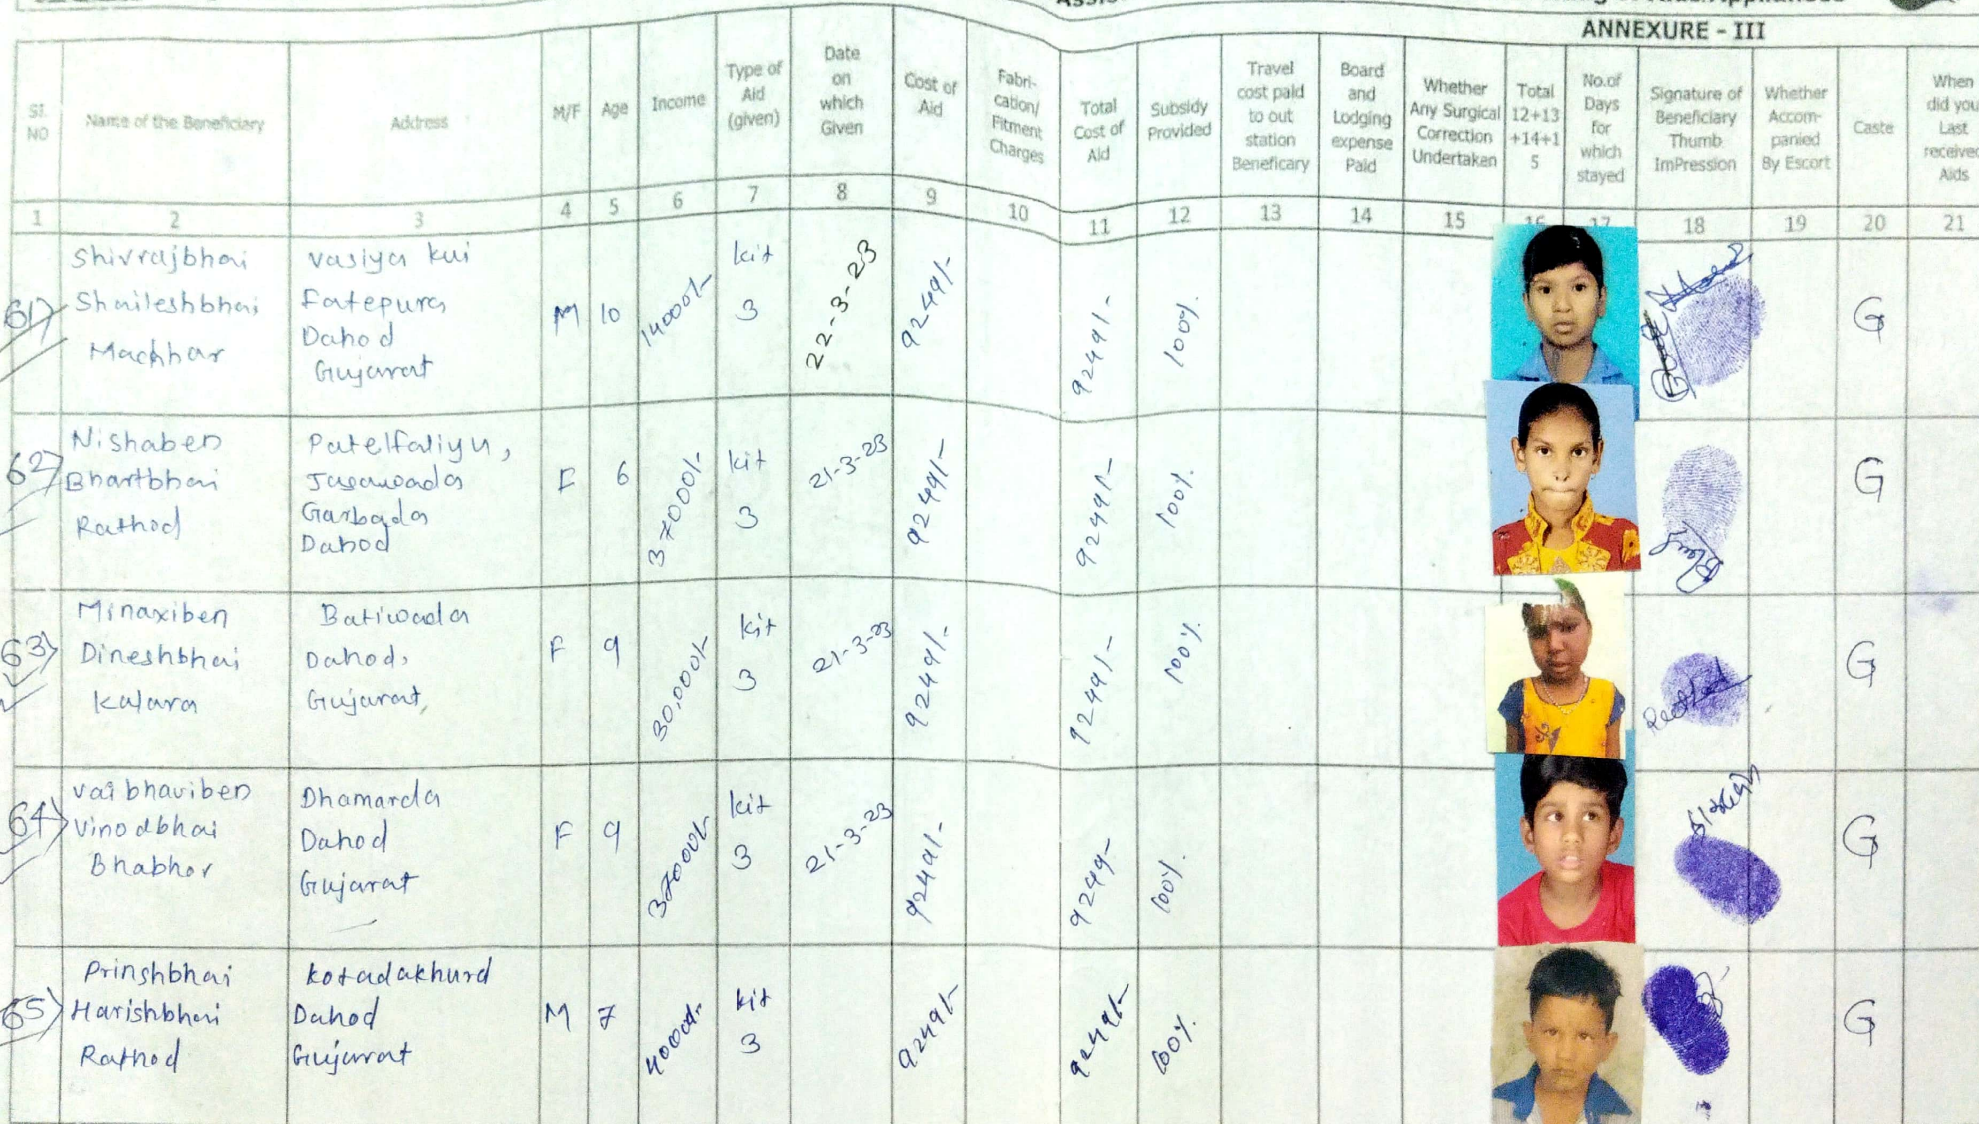 ANNEXURE - III
Sl. NO
Name of the Beneficiary
Address
M/F
Age
Income
Type of Aid (given)
Date on which Given
Cost of Aid
Fabri-cation/ Fitment Charges
Total Cost of Aid
Subsidy Provided
Travel cost paid to out station Beneficary
Board and Lodging expense Paid
Whether Any Surgical Correction Undertaken
Total 12+13 +14+1 5
No.of Days for which stayed
Signature of Beneficiary Thumb ImPression
Whether Accom-panied By Escort
Caste
When did you Last received Aids
1 2 3 4 5 6 7 8 9 10 11 12 13 14 15 16 17 18 19 20 21
61)
Shivrajbhai
Shaileshbhai
Machhar
vasiya kui
Fatepura
Dahod
Gujarat
M 10 14000/- kit 3 22-3-23 9249/- 9249/- 100% G
62)
Nishaben
Bhartbhai
Rathod
Patelfaliyu,
Jasawada
Garbada
Dahod
F 6 37000/- kit 3 21-3-23 9249/- 9249/- 100% G
63)
Minaxiben
Dineshbhai
Kalara
Batiwada
Dahod,
Gujarat,
F 9 30,000/- kit 3 21-3-23 9249/- 9249/- 100% G
64)
vaibhaviben
Vinodbhai
Bhabhor
Dhamarda
Dahod
Gujarat
F 9 37000/- kit 3 21-3-23 9249/- 9249/- 100% G
65)
Prinshbhai
Harishbhai
Rathod
kotadakhurd
Dahod
Gujarat
M 7 40000/- kit 3 9249/- 9249/- 100% G